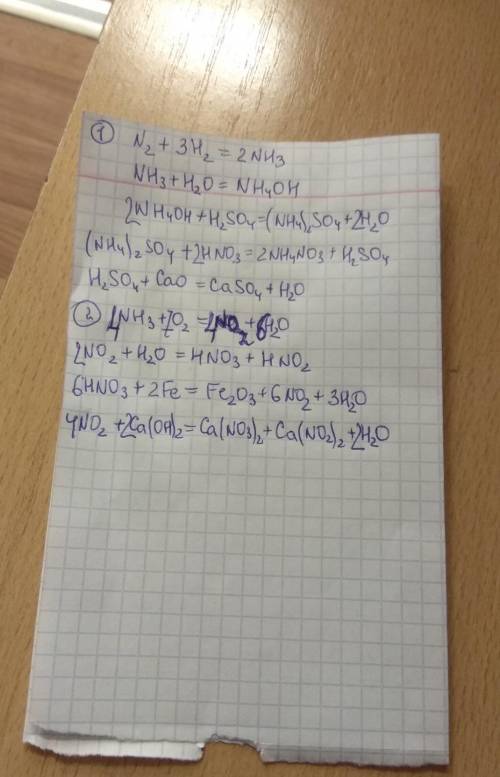 ① N₂ + 3H₂ = 2NH₃
NH₃ + H₂O = NH₄OH
2NH₄OH + H₂SO₄ = (NH₄)₂SO₄ + 2H₂O
(NH₄)₂SO₄ + 2HNO₃ = 2NH₄NO₃ + H₂SO₄
H₂SO₄ + CaO = CaSO₄ + H₂O
② 4NH₃ + 7O₂ = 4NO₂ + 6H₂O
2NO₂ + H₂O = HNO₃ + HNO₂
6HNO₃ + 2Fe = Fe₂O₃ + 6NO₂ + 3H₂O
4NO₂ + 2Ca(OH)₂ = Ca(NO₃)₂ + Ca(NO₂)₂ + 2H₂O